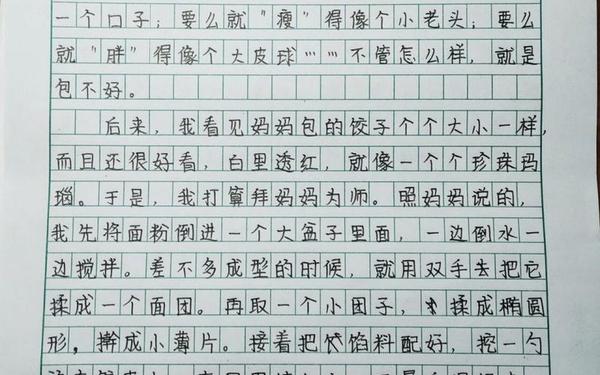 一个口子；要么就“瘦”得像个小老头；要么
就“胖”得像个大皮球……不管怎么样，就是
包不好。
后来，我看见妈妈包的饺子个个大小一样，
而且还很好看，白里透红，就像一个个珍珠玛
瑙。于是，我打算拜妈妈为师。照妈妈说的，
我先将面粉倒进一个大盆子里面，一边倒水一
边搅拌。差不多成型的时候，就用双手去把它
揉成一个面团。再取一个小团子，揉成椭圆
形，擀成小薄片。接着把馅料配好，挖一勺